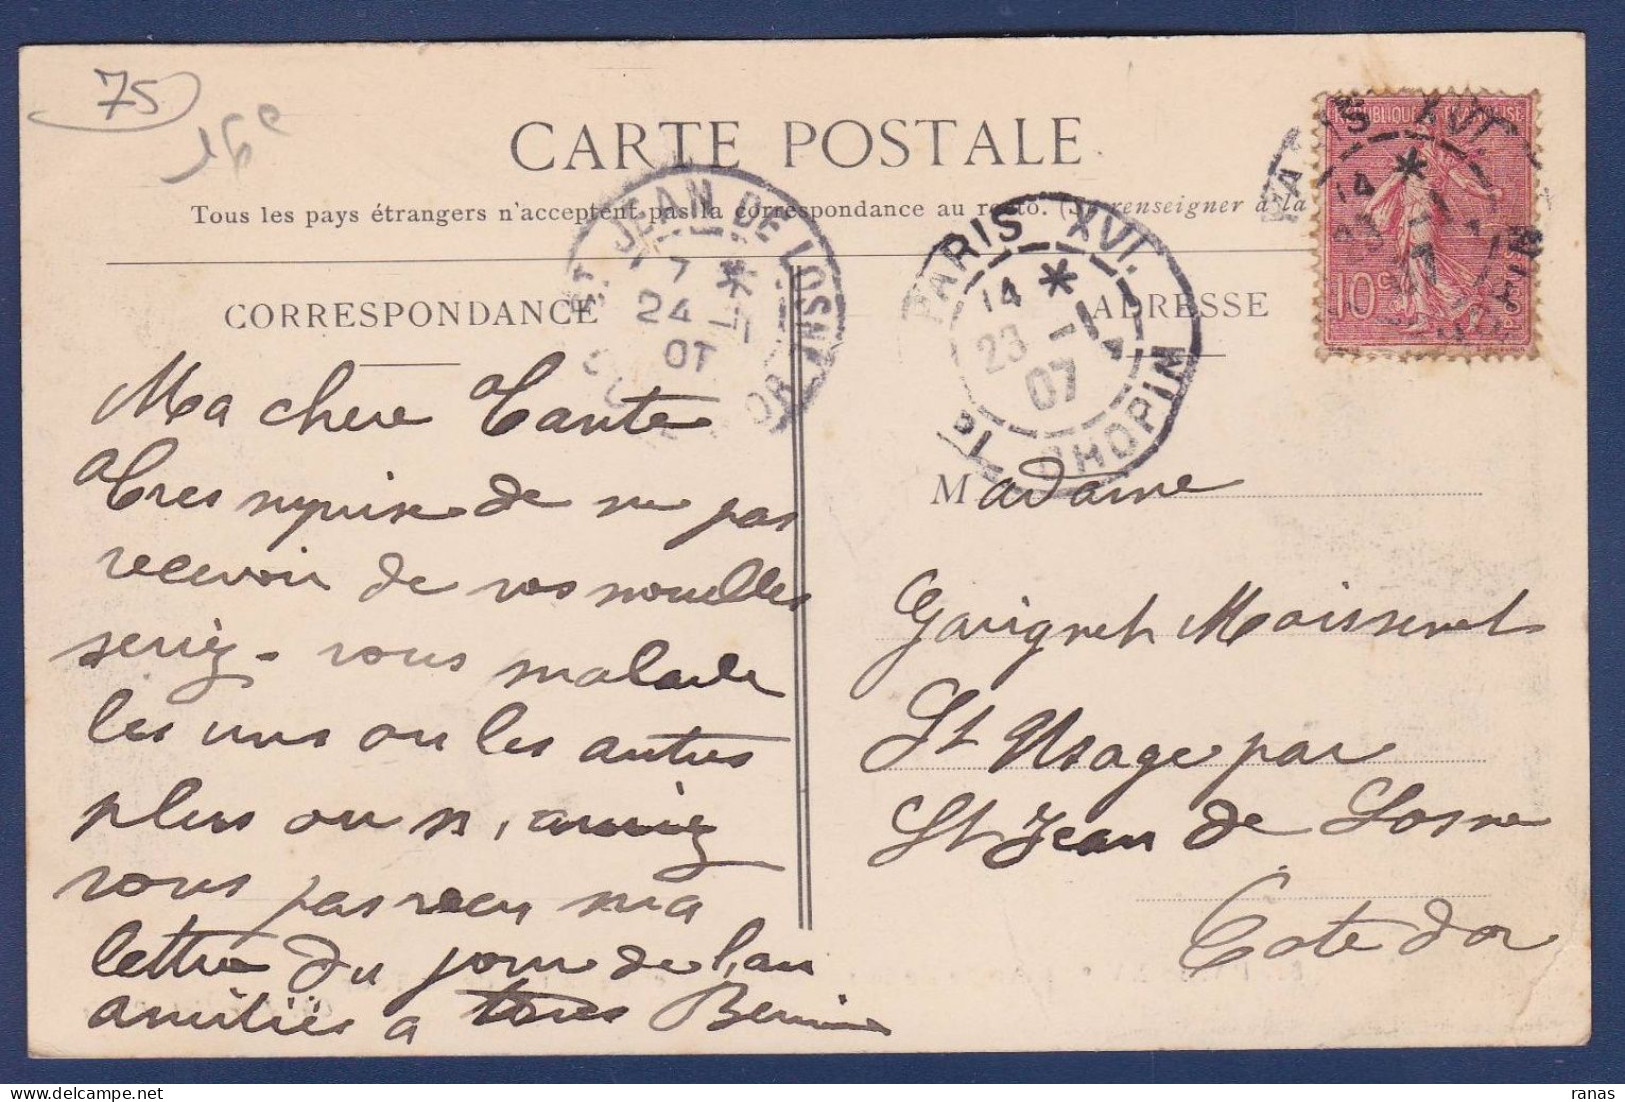 75
16e
CARTE POSTALE
Tous les pays étrangers n'acceptent pas la correspondance au recto. (Se renseigner à la
CORRESPONDANCE
ADRESSE
ST JEAN DE LOSNE
7 *
24 - 1
07
CÔTE D'OR
PARIS XVI.
14 *
23 - 1
07
PL. CHOPIN
PARIS XVI.
14 *
23 - 1
07
REPUBLIQUE FRANÇAISE
10c
POSTES
Ma chere Tante
Tres surprise de ne pas
recevoir de vos nouvelles
seriez-vous malade
les uns ou les autres
plus ou n, auriez
vous pas recu ma
lettre du jour de l,an
amitiés a tous
Madame
Garignet Moissenet
St Usage par
St Jean de Losne
Cote d'or
ranas